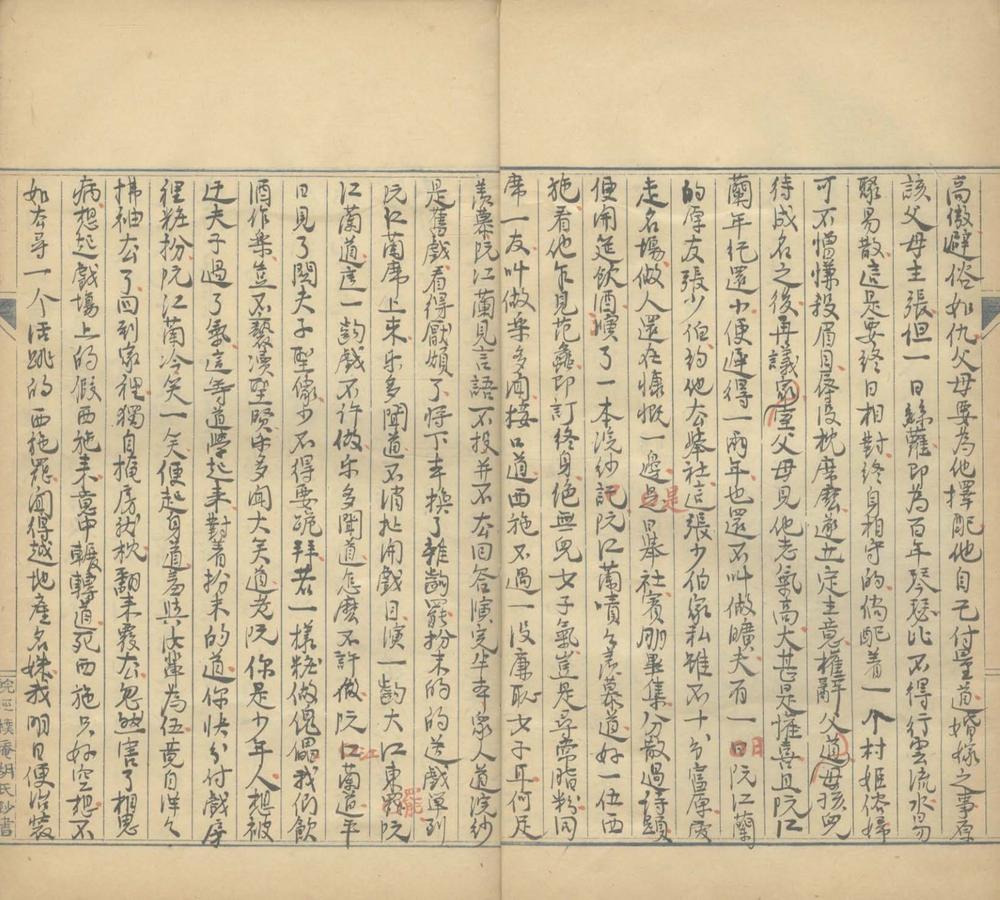 高傲避俗如仇父母要為他擇配他自己忖量道婚嫁之事原
該父母主張但一日絲蘿即為百年琴瑟比不得行雲流水易
聚易散這是要終日相對終身相守的倘配著一个村姬俗婦
可不憎嫌殺眉目辱沒枕席麼遂立定主意權辭父道母孩兒
待成名之後再議家室父母見他志氣高大甚是懽喜且阮江
蘭年紀還小便遲得一兩年也還不叫做曠夫有一日阮江蘭
的厚友張少伯約他去舉社這張少伯家私雖不十分富厚愛
走名場做人還在慷慨一邊是日舉社賓朋畢集分散過詩題
便開筵飲酒演了一本浣紗記阮江蘭嘖嘖羨慕道好一位西
施看他乍見范蠡即訂終身絕無兒女子氣豈是尋常脂粉同
席一友叫做樂多聞接口道西施不過一沒廉恥女子耳何足
羨慕阮江蘭見言語不投并不去回答演完半本眾人道浣紗
是舊戲看得厭煩了將下本換了雜齣罷扮末的的送戲單到
阮江蘭席上來樂多聞道不消扯開戲目演一齣大江東罷阮
江蘭道這一齣戲不許做樂多聞道怎麼不許做阮江蘭道平
日見了關夫子聖像少不得要跪拜若一樣粧做傀儡我們飲
酒作樂豈不褻瀆聖賢樂多聞大笑道老阮你是少年人想被
迂夫子過了氣這等道學起來對著扮末的道你快分付戲房
裡粧扮阮江蘭冷笑一笑便起身道羞與汝輩為伍竟自洋々
拂袖去了回到家裡獨自掩房就枕翻來覆去忽然害了相思
病想起戲場上的假西施來意中輾轉道死西施只好空想不
如去尋一个活跳的西施罷聞得越地產名姝我明日便治裝
皖江樸庵胡氏鈔書